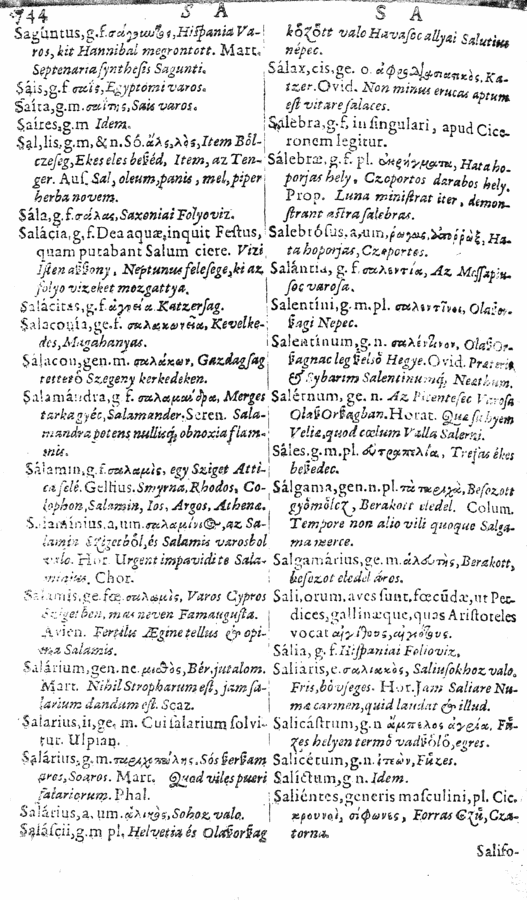 744 S A S A
Saguntus, g. f. σάγουντος, Hispania Va-
ros, kit Hannibal megrontott. Mart.
Septenaria synthesis Sagunti.
Sáis, g. f σαϊς, Egyptomi varos.
Saíta, g. m. σαίτης, Sais varos.
Saítes, g. m Idem.
Sal, lis, g. m, & n. Só. ἅλς, λὸς, Item Böl-
czeseg, Ekes eles beßéd, Item, az Ten-
ger. Aus. Sal, oleum, panis, mel, piper
herba novem.
Sála, g. f. σάλας, Saxoniai Folyo viz.
Salácia, g, f. Dea aquæ, inquit Festus,
quam putabant Salum ciere. Vizi
Isten aßßony, Neptunus felesege, ki az
folyo vizeket mozgattya.
Salácitas, g. f. Katzersag.
Salaconía, ge. f. σαλακωνεία, Kevelke-
des, Magahanyas.
Sálacon, gen. m. σαλάκων, Gazdagsag
tettető Szegeny kerkedeken.
Salamándra, g f. σαλαμάνδρα, Merges
tarka gyéc, Salamander, Seren. Sala-
mandra potens nullisq; obnoxia flam-
mis.
Sálamin, g. f. σαλαμὶς, egy Sziget Atti-
ca felé. Gellius. Smyrna, Rhodos, Co-
lophon, Salamin, Ios, Argos, Athenæ.
Salaminius, a, um. σαλαμίνιος, az Sa-
lamin Szigetből, és Salamis varosbol
valo. Hor. Urgent impavidi te Sala-
minius. Chor.
Salamis, ge. fœ. σαλαμὶς, Varos Cypros
Szigetben, mas neven Famaugusta.
Avien. Fertilis Ægine tellus & opi-
ma Salamis.
Salárium, gen. ne. μισθὸς, Bér, jutalom.
Mart. Nihil Stropharum est, jam sa-
larium dandum est. Scaz.
Salarius, ii, ge, m. Cui salarium solvi-
tur. Ulpian.
Salárius, g. m. ταριχοπώλης, Sós
ares, Soaros. Mart. Quod viles pueri
salariorum. Phal.
Salárius, a, um. ἁλικὸς, Sohoz valo.
Salássii, g. m pl. Helvetia és Olaßorßag
között valo Havasoc allyai Salutius
népec.
Sálax, cis, ge. o. Ka-
tzer. Ovid. Non minus erucas aptum
est vitare salaces.
Salebra, g. f, in singulari, apud Cice-
ronem legitur.
Salébræ, g. f. pl. Hata ho-
porjas hely, Czoportos darabos hely.
Prop. Luna ministrat iter, demon-
strant astra salebras.
Salebrósus, a, um, Ha-
ta hoporjas, Czoportes.
Salántia, g. f. σαλεντία, Az Messapiu-
soc varosa.
Salentíni, g. m. pl. σαλεντῖνοι, Olaßor-
ßagi Nepec.
Salentinum, g. n. σαλέντινον, Olaßor-
ßagnac leg ßelső Hegye. Ovid. Præterit
& Sybarim Salentinumq; Neæthum.
Salérnum, ge. n. Az Picentesec Varosa
Olaßorßagban. Horat. Quæ sit hyems
Veliæ, quod cœlum Valla Salerni.
Sáles, g. m. pl. εὐτραπελία, Trefas ékes
beßedec.
Sálgama, gen. n. pl. Besozott
gyömölcz, Berakott eledel. Colum.
Tempore non alio vili quoque Salga-
ma merce.
Salgamárius, ge. m. Berakott,
besozot eledel áros.
Salii, orum, aves sunt, fœcūdæ, ut Per-
dices, gallinæque, quas Aristoteles
vocat
Sália, g. f. Hispaniai Folioviz.
Saliáris, e. σαλιακὸς, Saliusokhoz valo.
Fris, bö vjeges. Hor. Jam Saliare Nu-
mæ carmen, quid laudat & illud.
Salicástrum, g. n ἄμπελος ἀγρία, Fü-
zes helyen termö vadßölö, egres.
Salicétum, g. n. ἰτεὼν, Füzes.
Salíctum, g. n. Idem.
Saliéntes, generis masculini, pl. Cic.
κρουνοὶ, σίφωνες, Forras Czü, Cza-
torna.
Salifo-